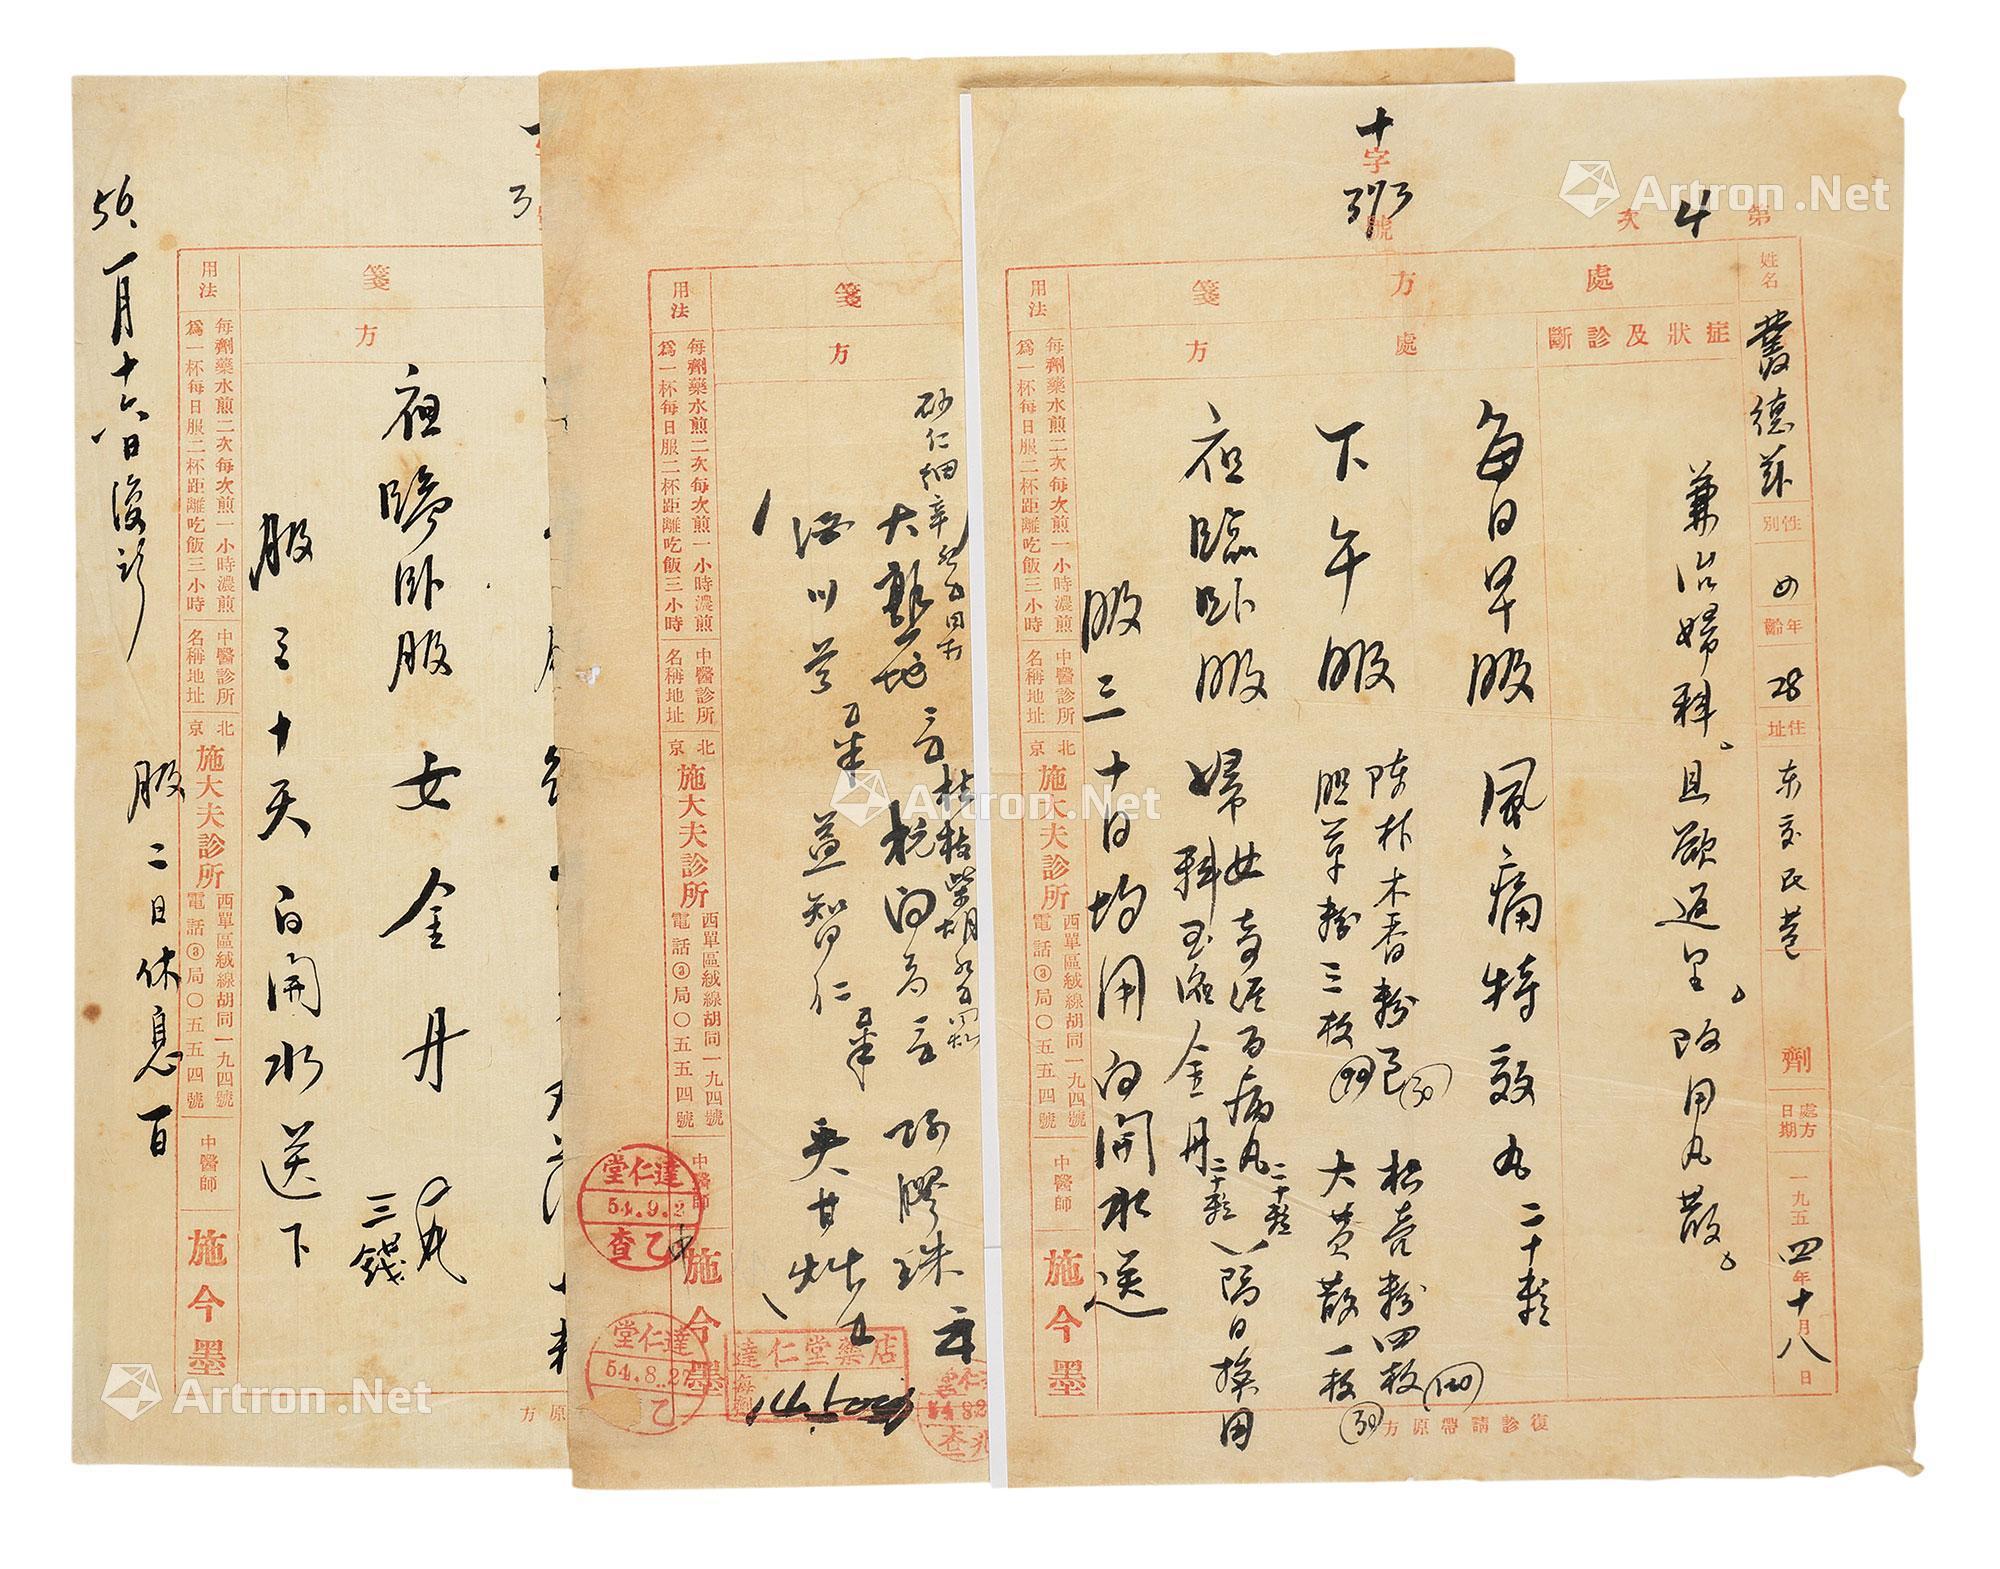 十字373號
第4次
姓名
叢德茲
性別
女
年齡
28
住址
东交民巷
劑
處方日期
一九五四年十月八日
處方箋
症狀及診斷
處方
兼治婦科。且欲返里。改用丸散。
每日早服 風痛特效丸二十粒
下午服
陈朴木香粉
松壳粉四枚
胆草粉三枚
大黄散一枝
夜臨卧服
婦女奇症百病丸二十粒
婦科玉液金丹二十粒
隔日換用
服二十日均用白開水送
用法
每劑藥水煎二次每次煎一小時濃煎
為一杯每日服二杯距離吃飯三小時
中醫診所名稱地址
北京
施大夫診所
西單區絨線胡同一九四號
電話③局〇五五四號
中醫師
施今墨
復診請帶原方
箋
方
砂仁細辛
大熟地
桂枝柴胡
杭白芍
阿膠珠
酒川芎
益智仁
炙甘草
用法
每劑藥水煎二次每次煎一小時濃煎
為一杯每日服二杯距離吃飯三小時
中醫診所名稱地址
北京
施大夫診所
西單區絨線胡同一九四號
電話③局〇五五四號
中醫師
施今墨
達仁堂
54.9.2
乙查
達仁堂
54.8.27
乙
達仁堂藥店
每劑
箋
方
夜臨卧服 女金丹
三錢
服三十天 白開水送下
用法
每劑藥水煎二次每次煎一小時濃煎
為一杯每日服二杯距離吃飯三小時
中醫診所名稱地址
北京
施大夫診所
西單區絨線胡同一九四號
電話③局〇五五四號
中醫師
施今墨
原方
56.一月十六日復診
服二日休息一日
Artron.Net
Artron.Net
Artron.Net
Artron.Net